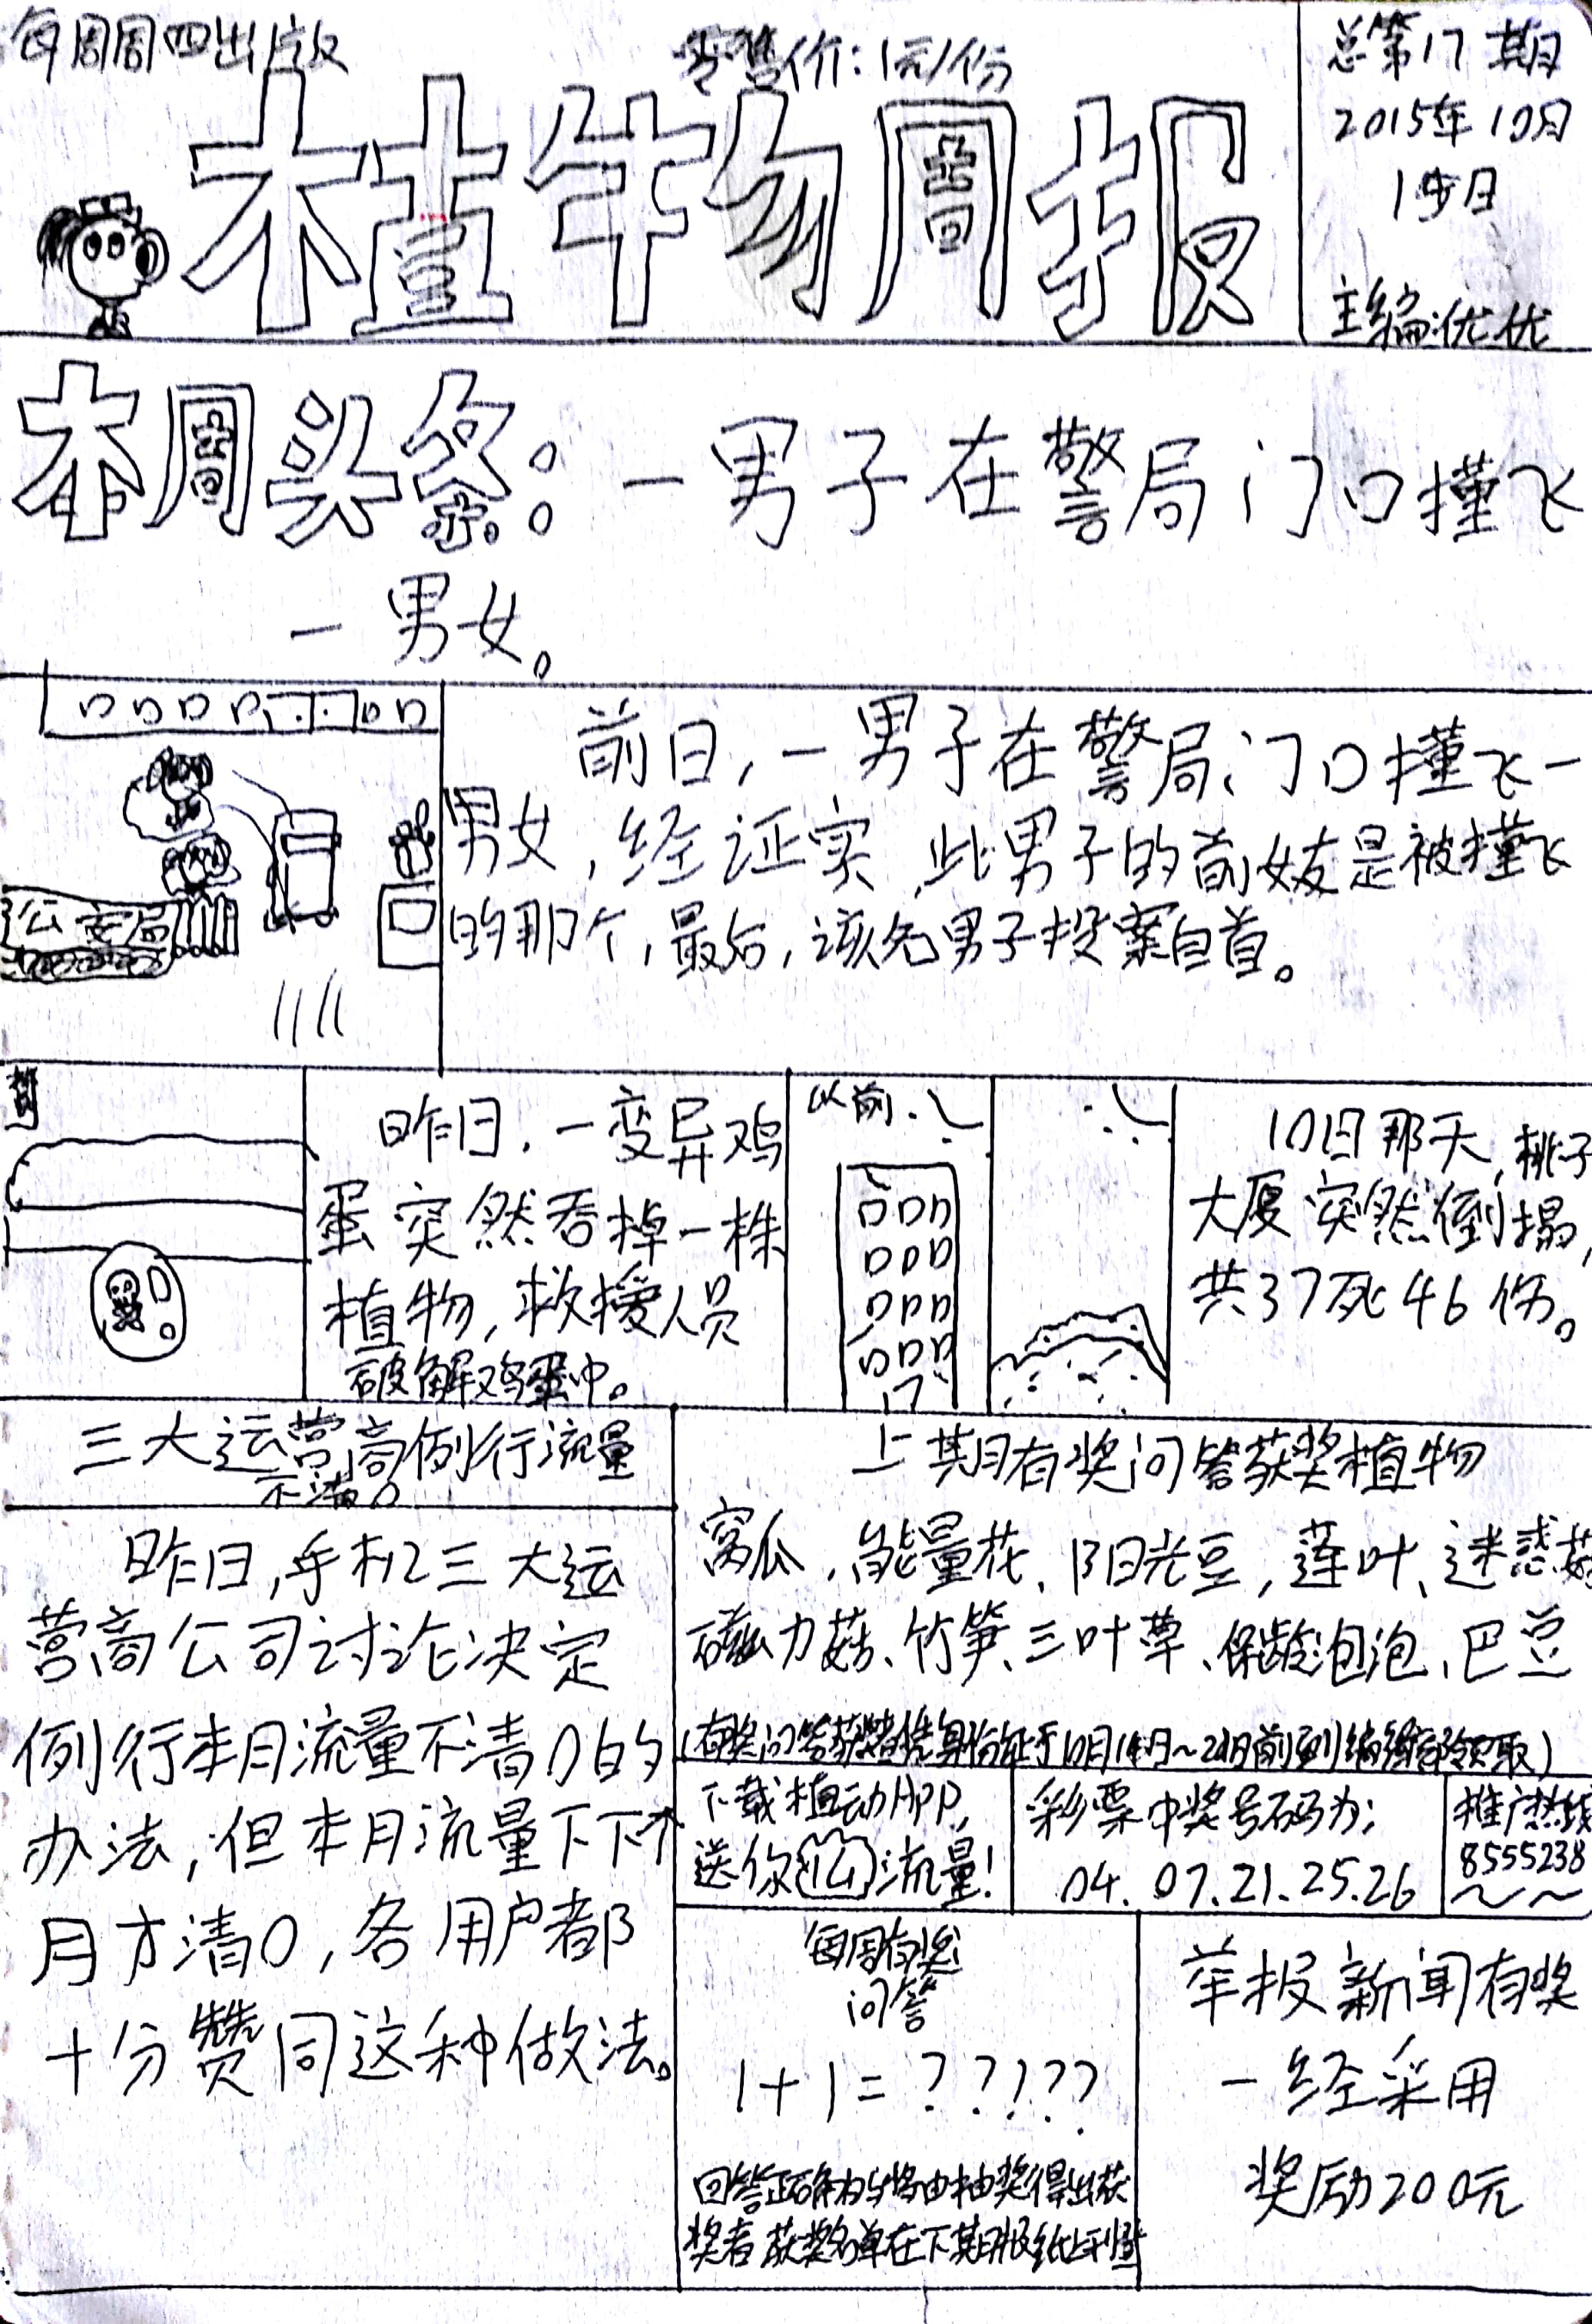 每周周四出版
零售价：1元/份
植物周报
总第17期
2015年10月
15日
主编:优优
本周头条：一男子在警局门口撞飞
一男女。
前日，一男子在警局门口撞飞一
男女，经证实，此男子的前女友是被撞飞
的那个，最后，该名男子投案自首。
公安局
昨日，一变异鸡
蛋突然吞掉一株
植物，救援人员
破解鸡蛋中。
以前
10日那天，桃子
大厦突然倒塌，
共37死46伤。
三大运营商例行流量
不清0
昨日，手机三大运
营商公司讨论决定
例行本月流量不清0的
办法，但本月流量下下个
月才清0，各用户都
十分赞同这种做法。
上期有奖问答获奖植物
窝瓜、能量花、阳光豆，莲叶、迷惑菇
磁力菇、竹笋、三叶草、保龄泡泡、巴豆
(有奖问答获奖者凭身份证于10月14日~20日前到编辑部领取)
下载植动APP，
送你1G流量！
彩票中奖号码为：
04.07.21.25.26
推广热线
8555238
每周有奖
问答
1+1=??!??
回答正确的将由抽奖得出获
奖者获奖名单在下期报纸上刊登
举报新闻有奖
一经采用
奖励200元